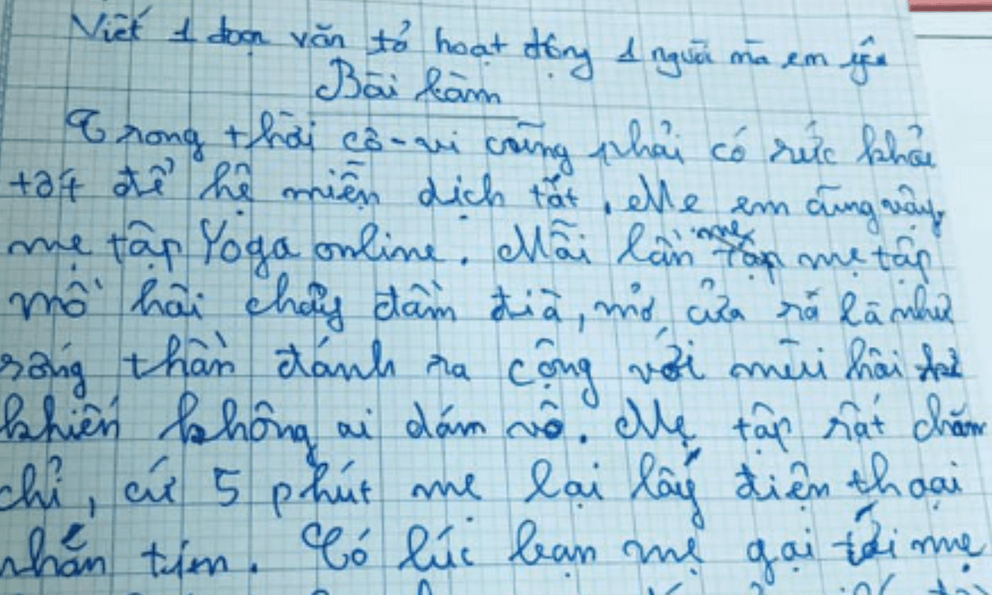 Viết 1 đoạn văn tả hoạt động 1 người mà em yêu
Bài làm
Trong thời cô-vi cũng phải có sức khỏe
tốt để hệ miễn dịch tốt. Mẹ em cũng vậy,
mẹ tập Yoga online. Mỗi lần mẹ tập mẹ tập
mồ hôi chảy đầm đìa, mở cửa ra là như
sóng thần đánh ra cộng với mùi hôi
khiến không ai dám vô. Mẹ tập rất chăm
chỉ, cứ 5 phút mẹ lại lấy điện thoại
nhắn tin. Có lúc bạn mẹ gọi tới mẹ